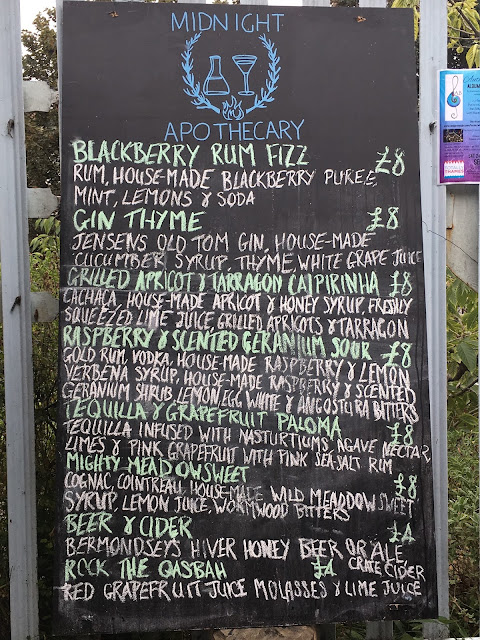 MIDNIGHT
APOTHECARY
BLACKBERRY RUM FIZZ £8
RUM, HOUSE-MADE BLACKBERRY PUREE,
MINT, LEMONS & SODA
GIN THYME £8
JENSENS OLD TOM GIN, HOUSE-MADE
CUCUMBER SYRUP, THYME, WHITE GRAPE JUICE
GRILLED APRICOT & TARRAGON CAIPIRINHA £8
CACHACA, HOUSE-MADE APRICOT & HONEY SYRUP, FRESHLY
SQUEEZED LIME JUICE, GRILLED APRICOTS & TARRAGON
RASPBERRY & SCENTED GERANIUM SOUR £8
GOLD RUM, VODKA, HOUSE-MADE RASPBERRY & LEMON
VERBENA SYRUP, HOUSE-MADE RASPBERRY & SCENTED
GERANIUM SHRUB, LEMON, EGG WHITE & ANGOSTURA BITTERS
TEQUILLA & GRAPEFRUIT PALOMA £8
TEQUILLA INFUSED WITH NASTURTIUMS, AGAVE NECTAR,
LIMES & PINK GRAPEFRUIT WITH PINK SEA-SALT RUM
MIGHTY MEADOWSWEET £8
COGNAC, COINTREAU, HOUSE-MADE WILD MEADDOWSWEET
SYRUP, LEMON JUICE, WORMWOOD BITTERS
BEER & CIDER £4
BERMONDSEYS HIVER HONEY BEER OR ALE,
CRATE CIDER
ROCK THE QASBAH £4
RED GRAPEFRUIT JUICE MOLASSES & LIME JUICE
TOTALLY
THAMES